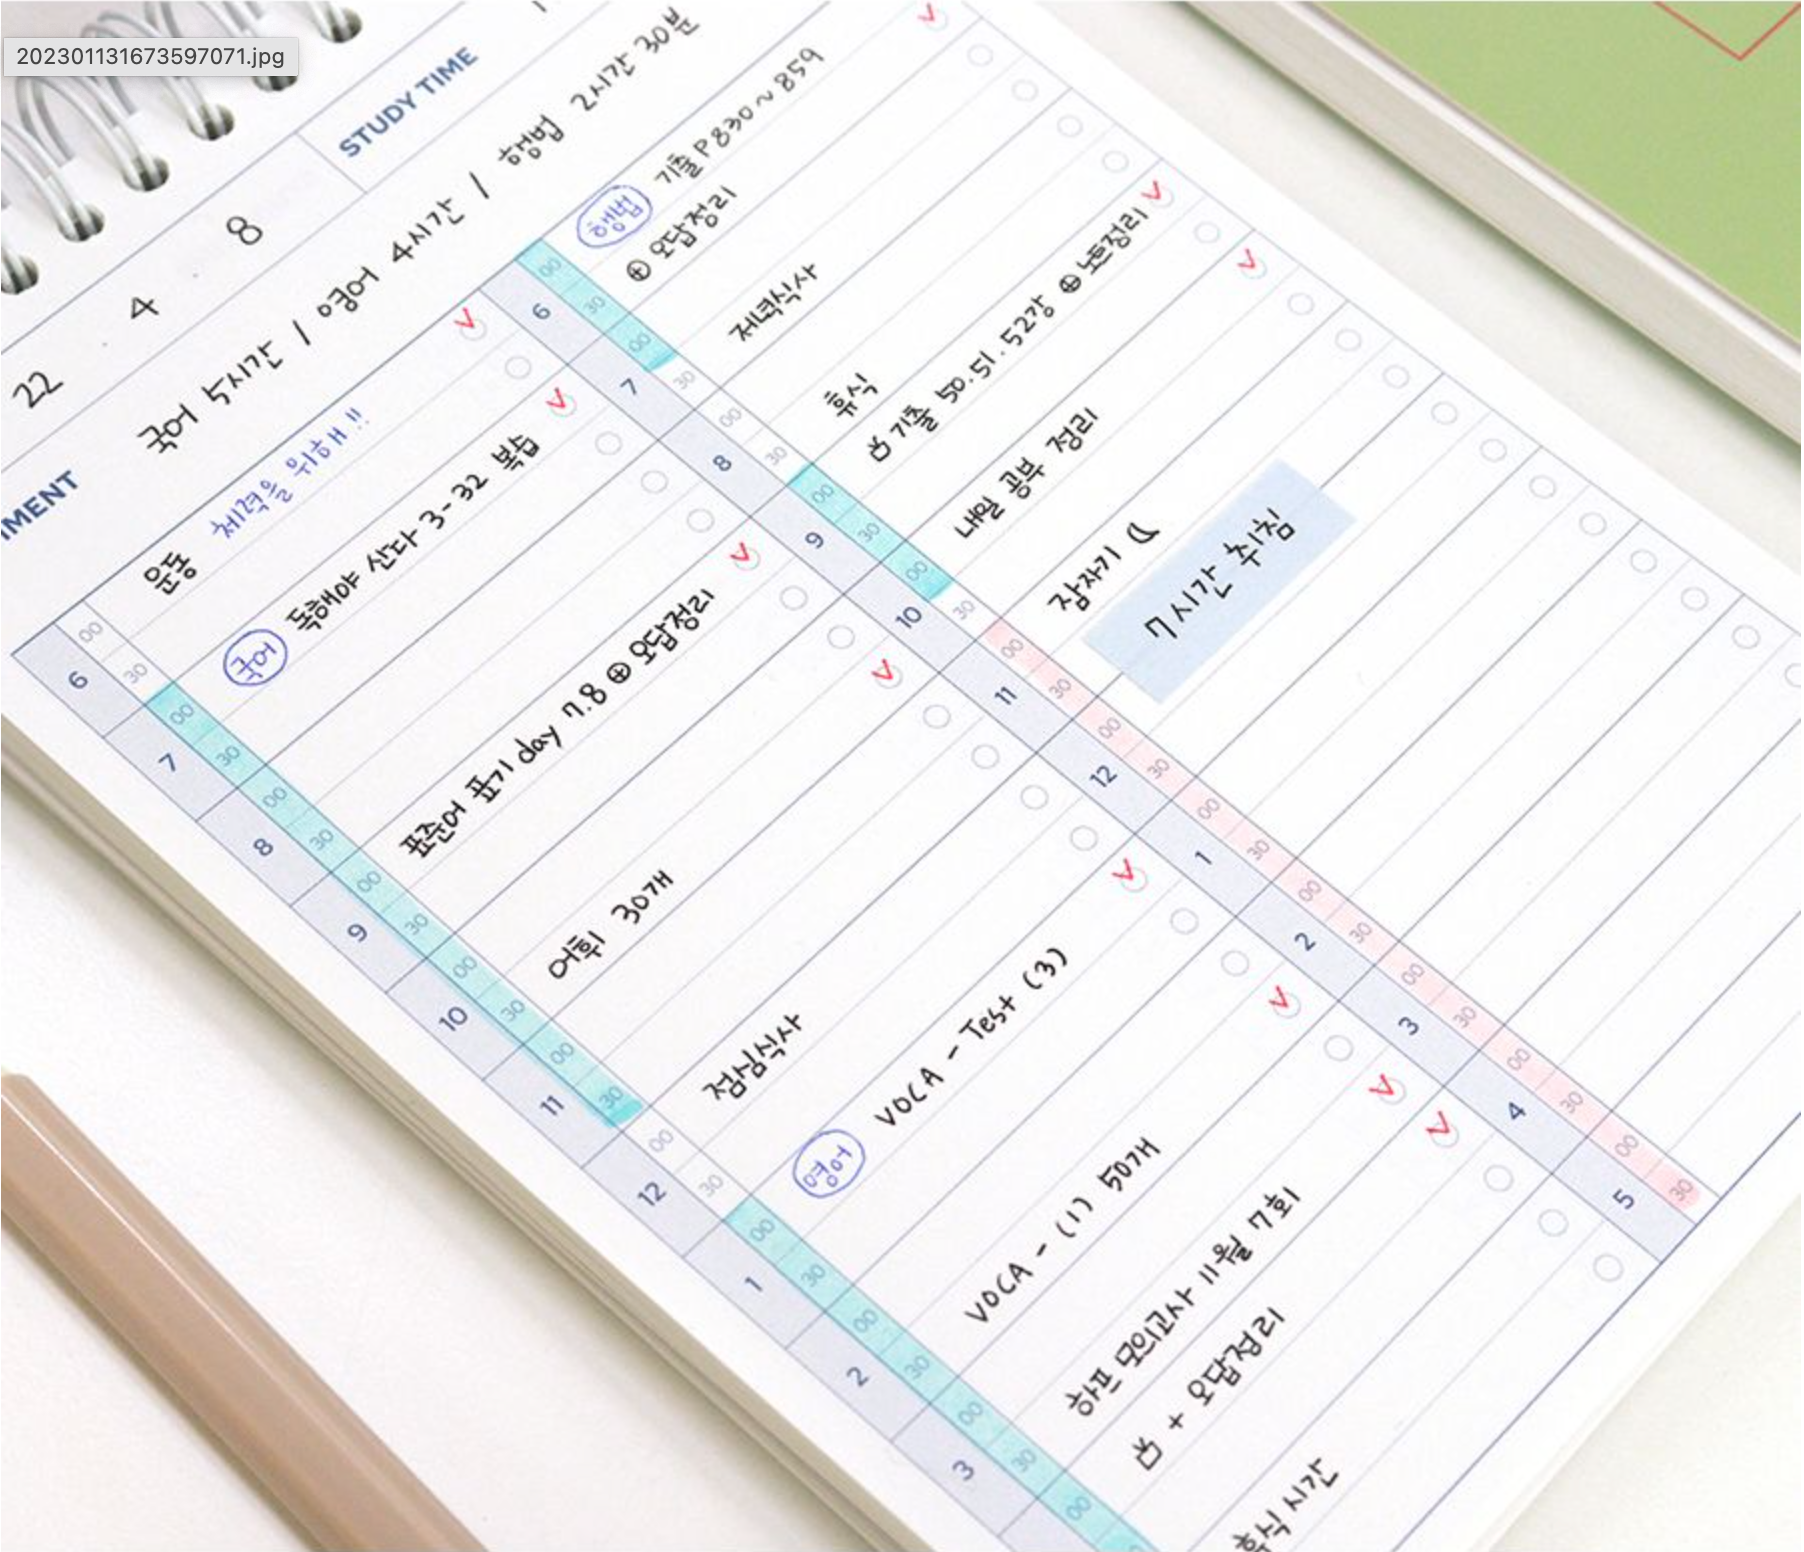 202301131673597071.jpg
STUDY TIME
22 4 8
MENT
국어 5시간 / 영어 4시간 / 행법 2시간 30분
운동 체력을 위해!!
국어 독해야 산다 3-32 복습
표준어 표기 day 7.8 ⊕ 오답정리
어휘 30개
점심식사
영어 VOCA - Test (3)
VOCA - (1) 50개
하프 모의고사 11월 7회
+ 오답정리
휴식 시간
6 00 30
7 00 30
8 00 30
9 00 30
10 00 30
11 00 30
12 00 30
1 00 30
2 00 30
3 00 30
00
행법 기출 P830~859
⊕ 오답정리
저녁식사
휴식
기출 50.51.52강 ⊕ 노트정리
내일 공부 정리
잠자기
7시간 취침
6 00 30
7 00 30
8 00 30
9 00 30
10 00 30
11 00 30
12 00 30
1 00 30
2 00 30
3 00 30
4 00 30
5 00 30